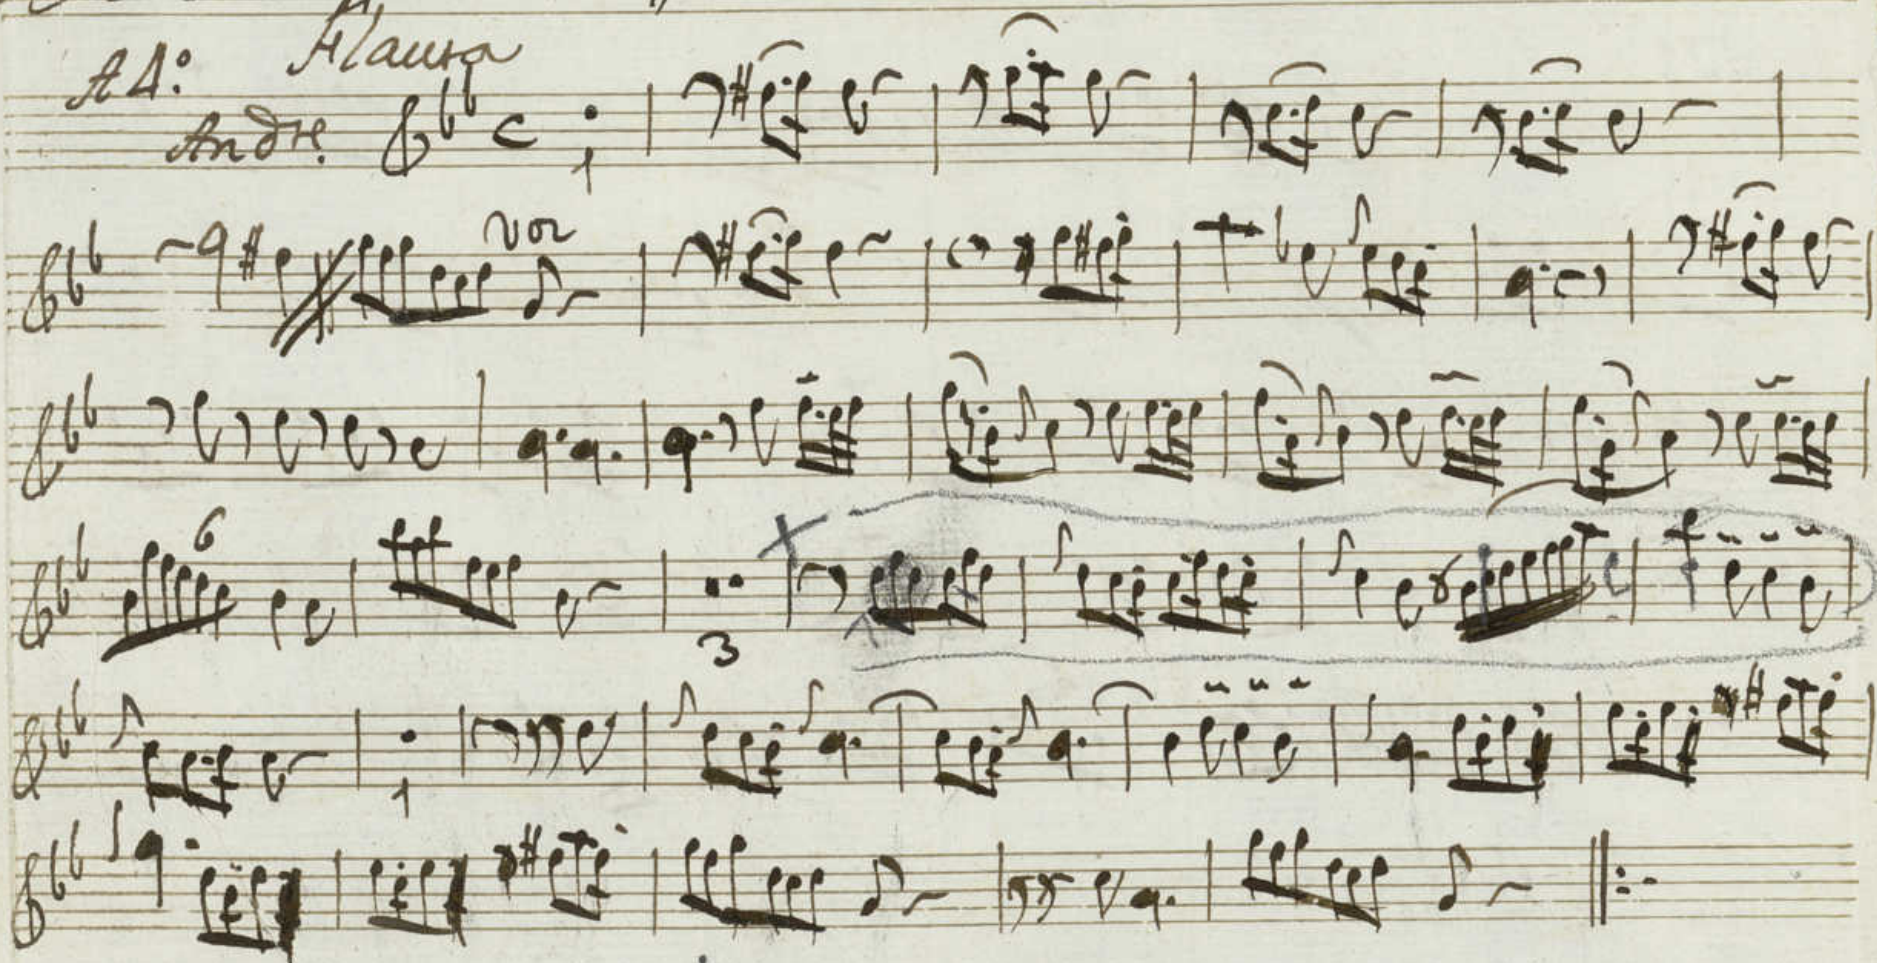 A 4º Flauta
Andte.
1
voz
6
3
1